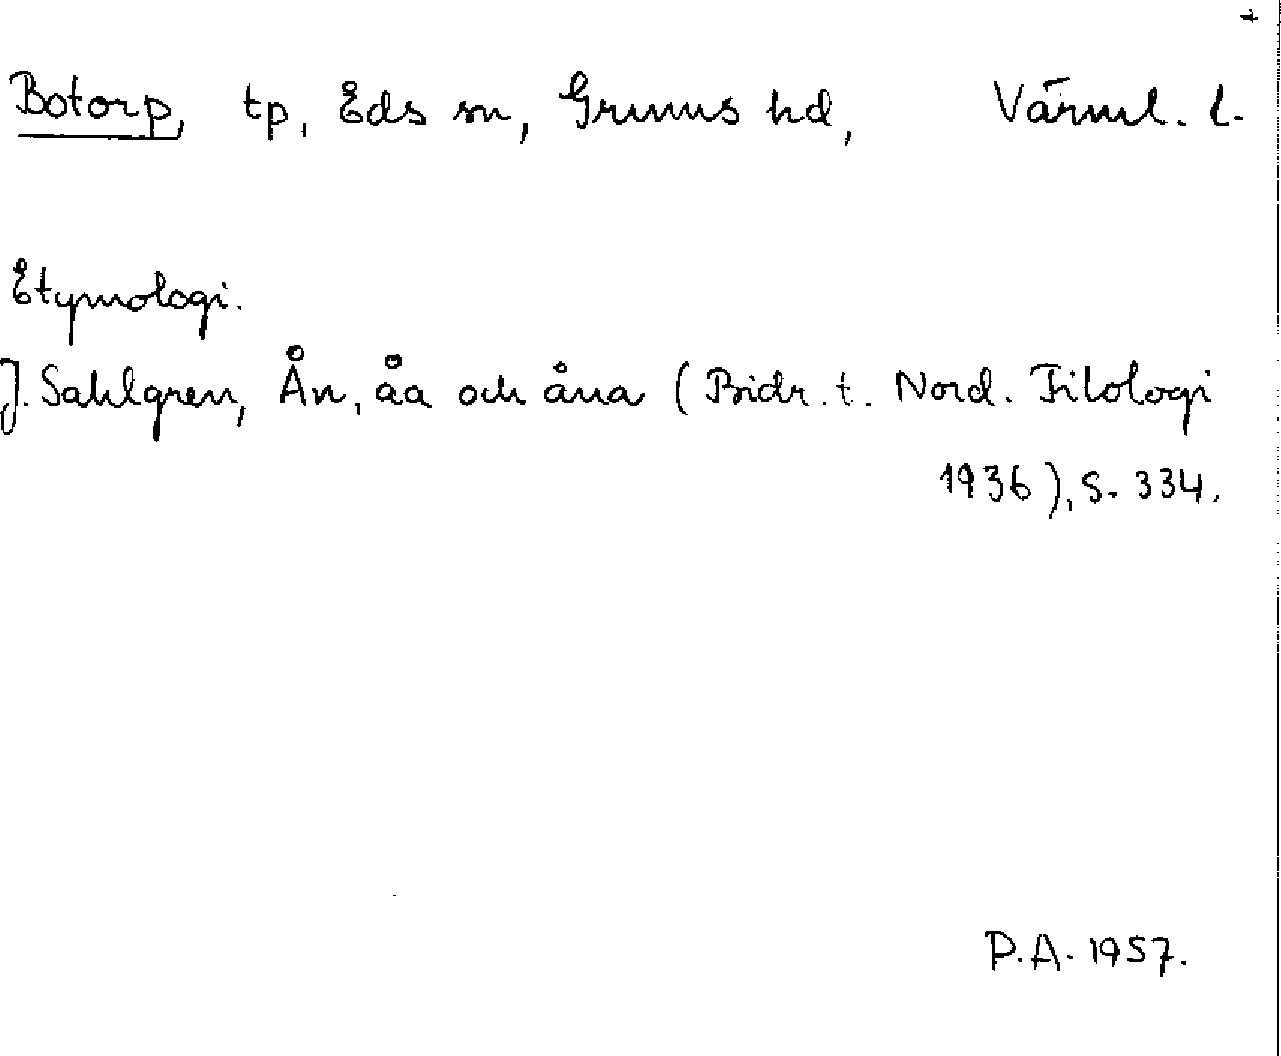 +
Botorp, tp, Eds sn, Grums hd, Värml. l.
Etymologi.
J. Sahlgren, Ån, åa och åna (Bidr. t. Nord. Filologi
1936), s. 334.
P.A. 1957.